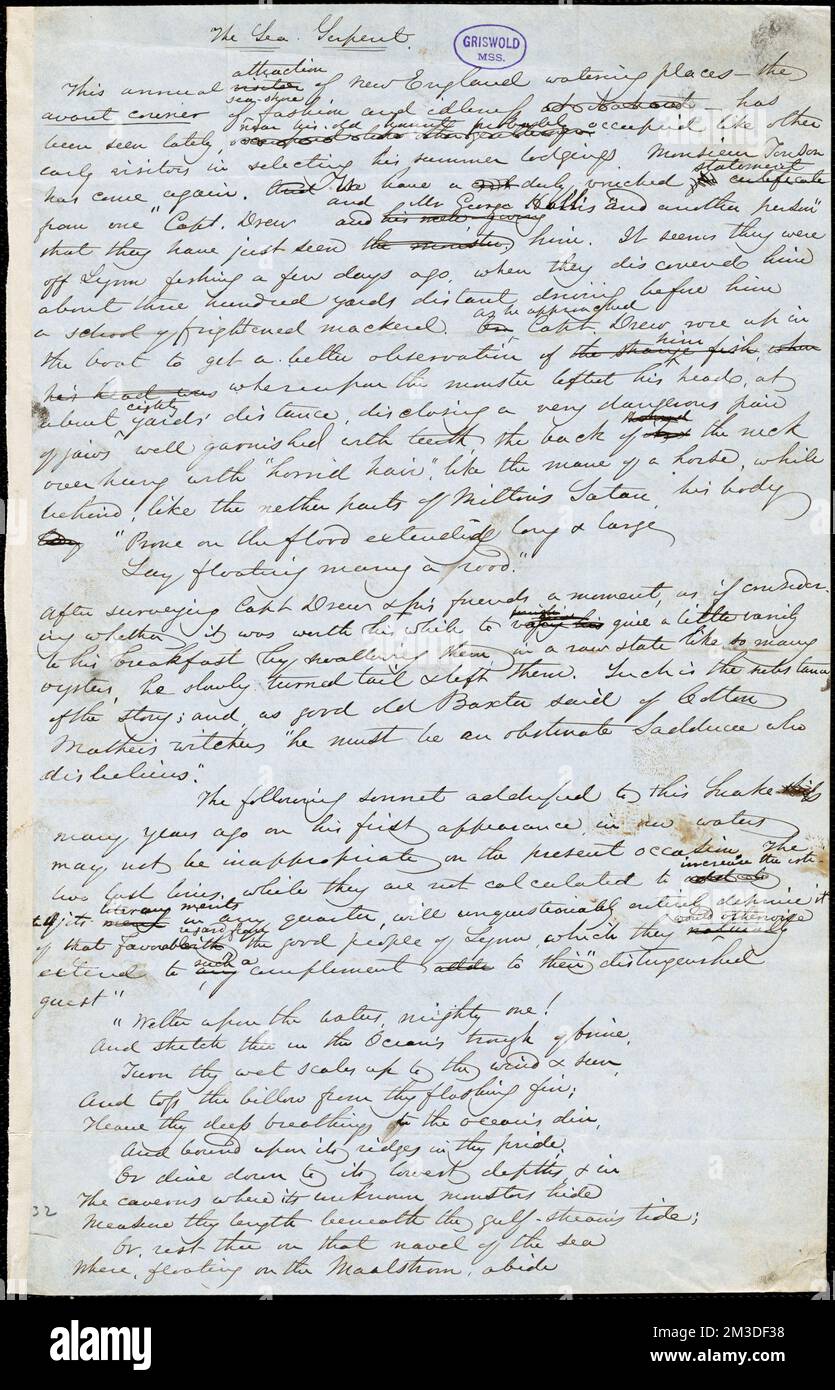 The Sea Serpent.
GRISWOLD
MSS.
attraction
This annual visitor of New England watering places – the
sea-shore
avant courier of fashion and idleness – has
near his old summer
been seen lately, probably occupied like other
early visitors in selecting his summer lodgings. Monsieur Tonson
statement
has come again. We have a duly witnessed certificate
and Mr George Hollis
from one "Capt. Drew and "and another person"
that they have just seen the monster, him. It seems they were
off Lynn fishing a few days ago, when they discovered him
about three hundred yards distant, driving before him
as he approached
a school of frightened mackerel. Capt. Drew rose up in
him
the boat to get a better observation of the strange fish, when
his head was whereupon the monster lifted his head, at
eighty
about yards' distance, disclosing a very dangerous pair
of jaws well garnished with teeth, the back of the neck
overhung with "horrid hair", like the mane of a horse, while
behind, like the nether parts of Milton's Satan, his body
"Prone on the flood extending long & large
Lay floating many a rood."
After surveying Capt Drew & his friends a moment, as if consider-
ing whether it was worth his while to give a little variety
to his breakfast by swallowing them in a raw state like so many
oysters, he slowly turned tail & left them. Such is the substance
of the story; and, as good old Baxter said of Cotton
Mather's witches "he must be an obstinate Sadducee who
disbelieves".
The following sonnet addressed to this Snake
many years ago on his first appearance in our waters
may not be inappropriate on the present occasion. The
increase the
two last lines, while they are not calculated to
literary merits
of its in any quarter, will unquestionably entirely deprive it
regard from would otherwise
of that favorable the good people of Lynn, which they naturally
such a
extend to any compliment to their "distinguished
guest"
"Welter upon the waters, mighty one!
And stretch thee in the Ocean's trough of brine,
Turn thy wet scales up to the wind & sun,
And toss the billow from thy flashing fin;
Heave thy deep breathings to the ocean's din,
And bound upon its ridges in thy pride,
Or dive down to its lowest depths, & in
The caverns where its unknown monsters hide
Measure thy length beneath the gulf-stream's tide;
Or rest thee on that navel of the sea
Where, floating on the Maalstrom, abide
32
alamy
Image ID: 2M3DF38
www.alamy.com